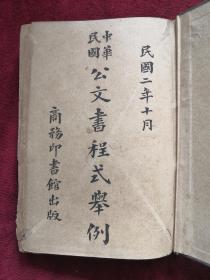 民國二年十月
中華民國
公文書程式舉例
商務印書館出版